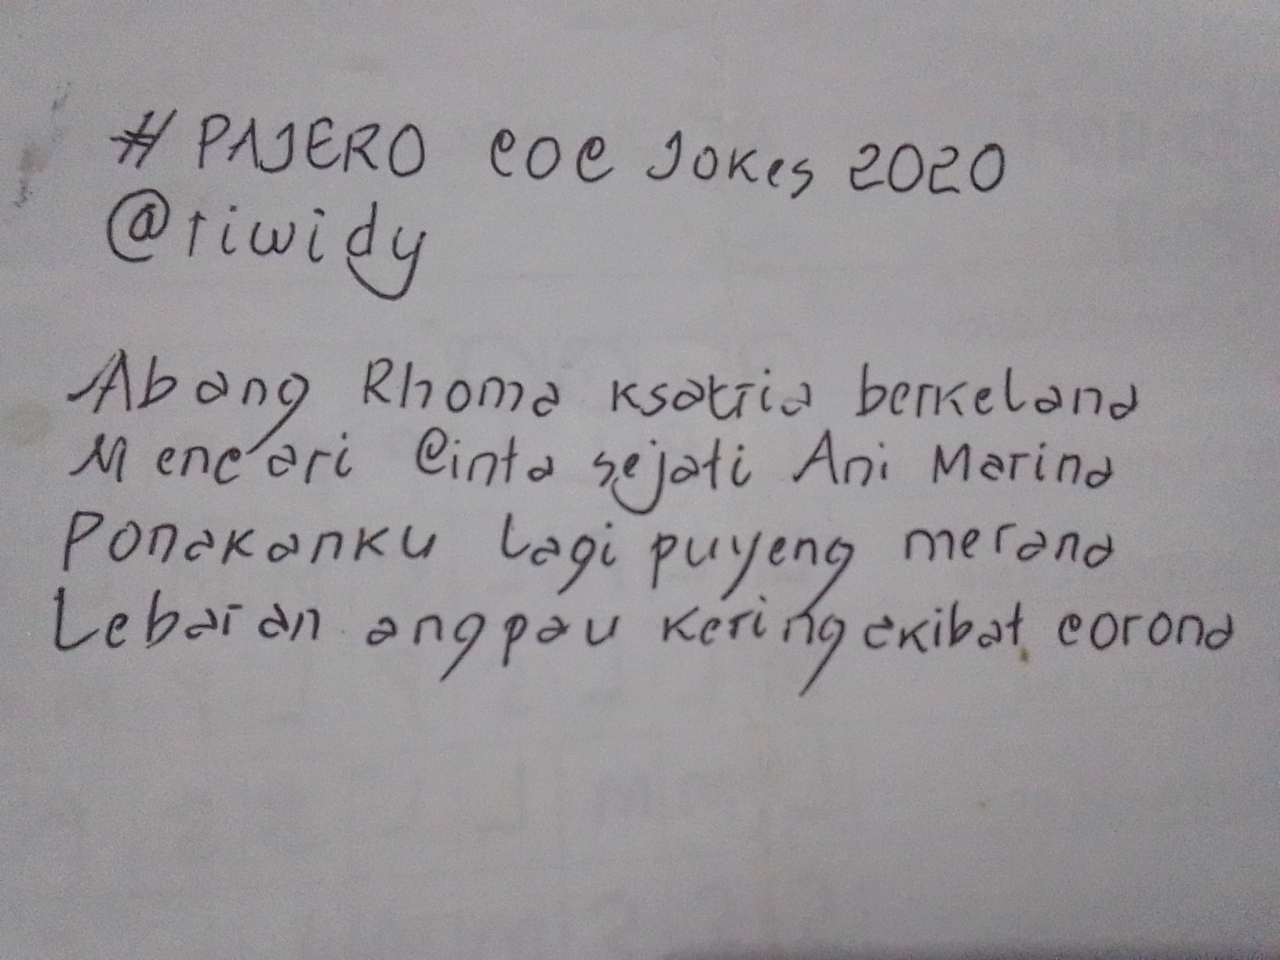 # PAJERO COC Jokes 2020
@riwidy
Abang Rhoma ksatria berkelana
Mencari Cinta sejati Ani Marina
Ponakanku lagi puyeng merana
Lebaran angpau kering akibat corona